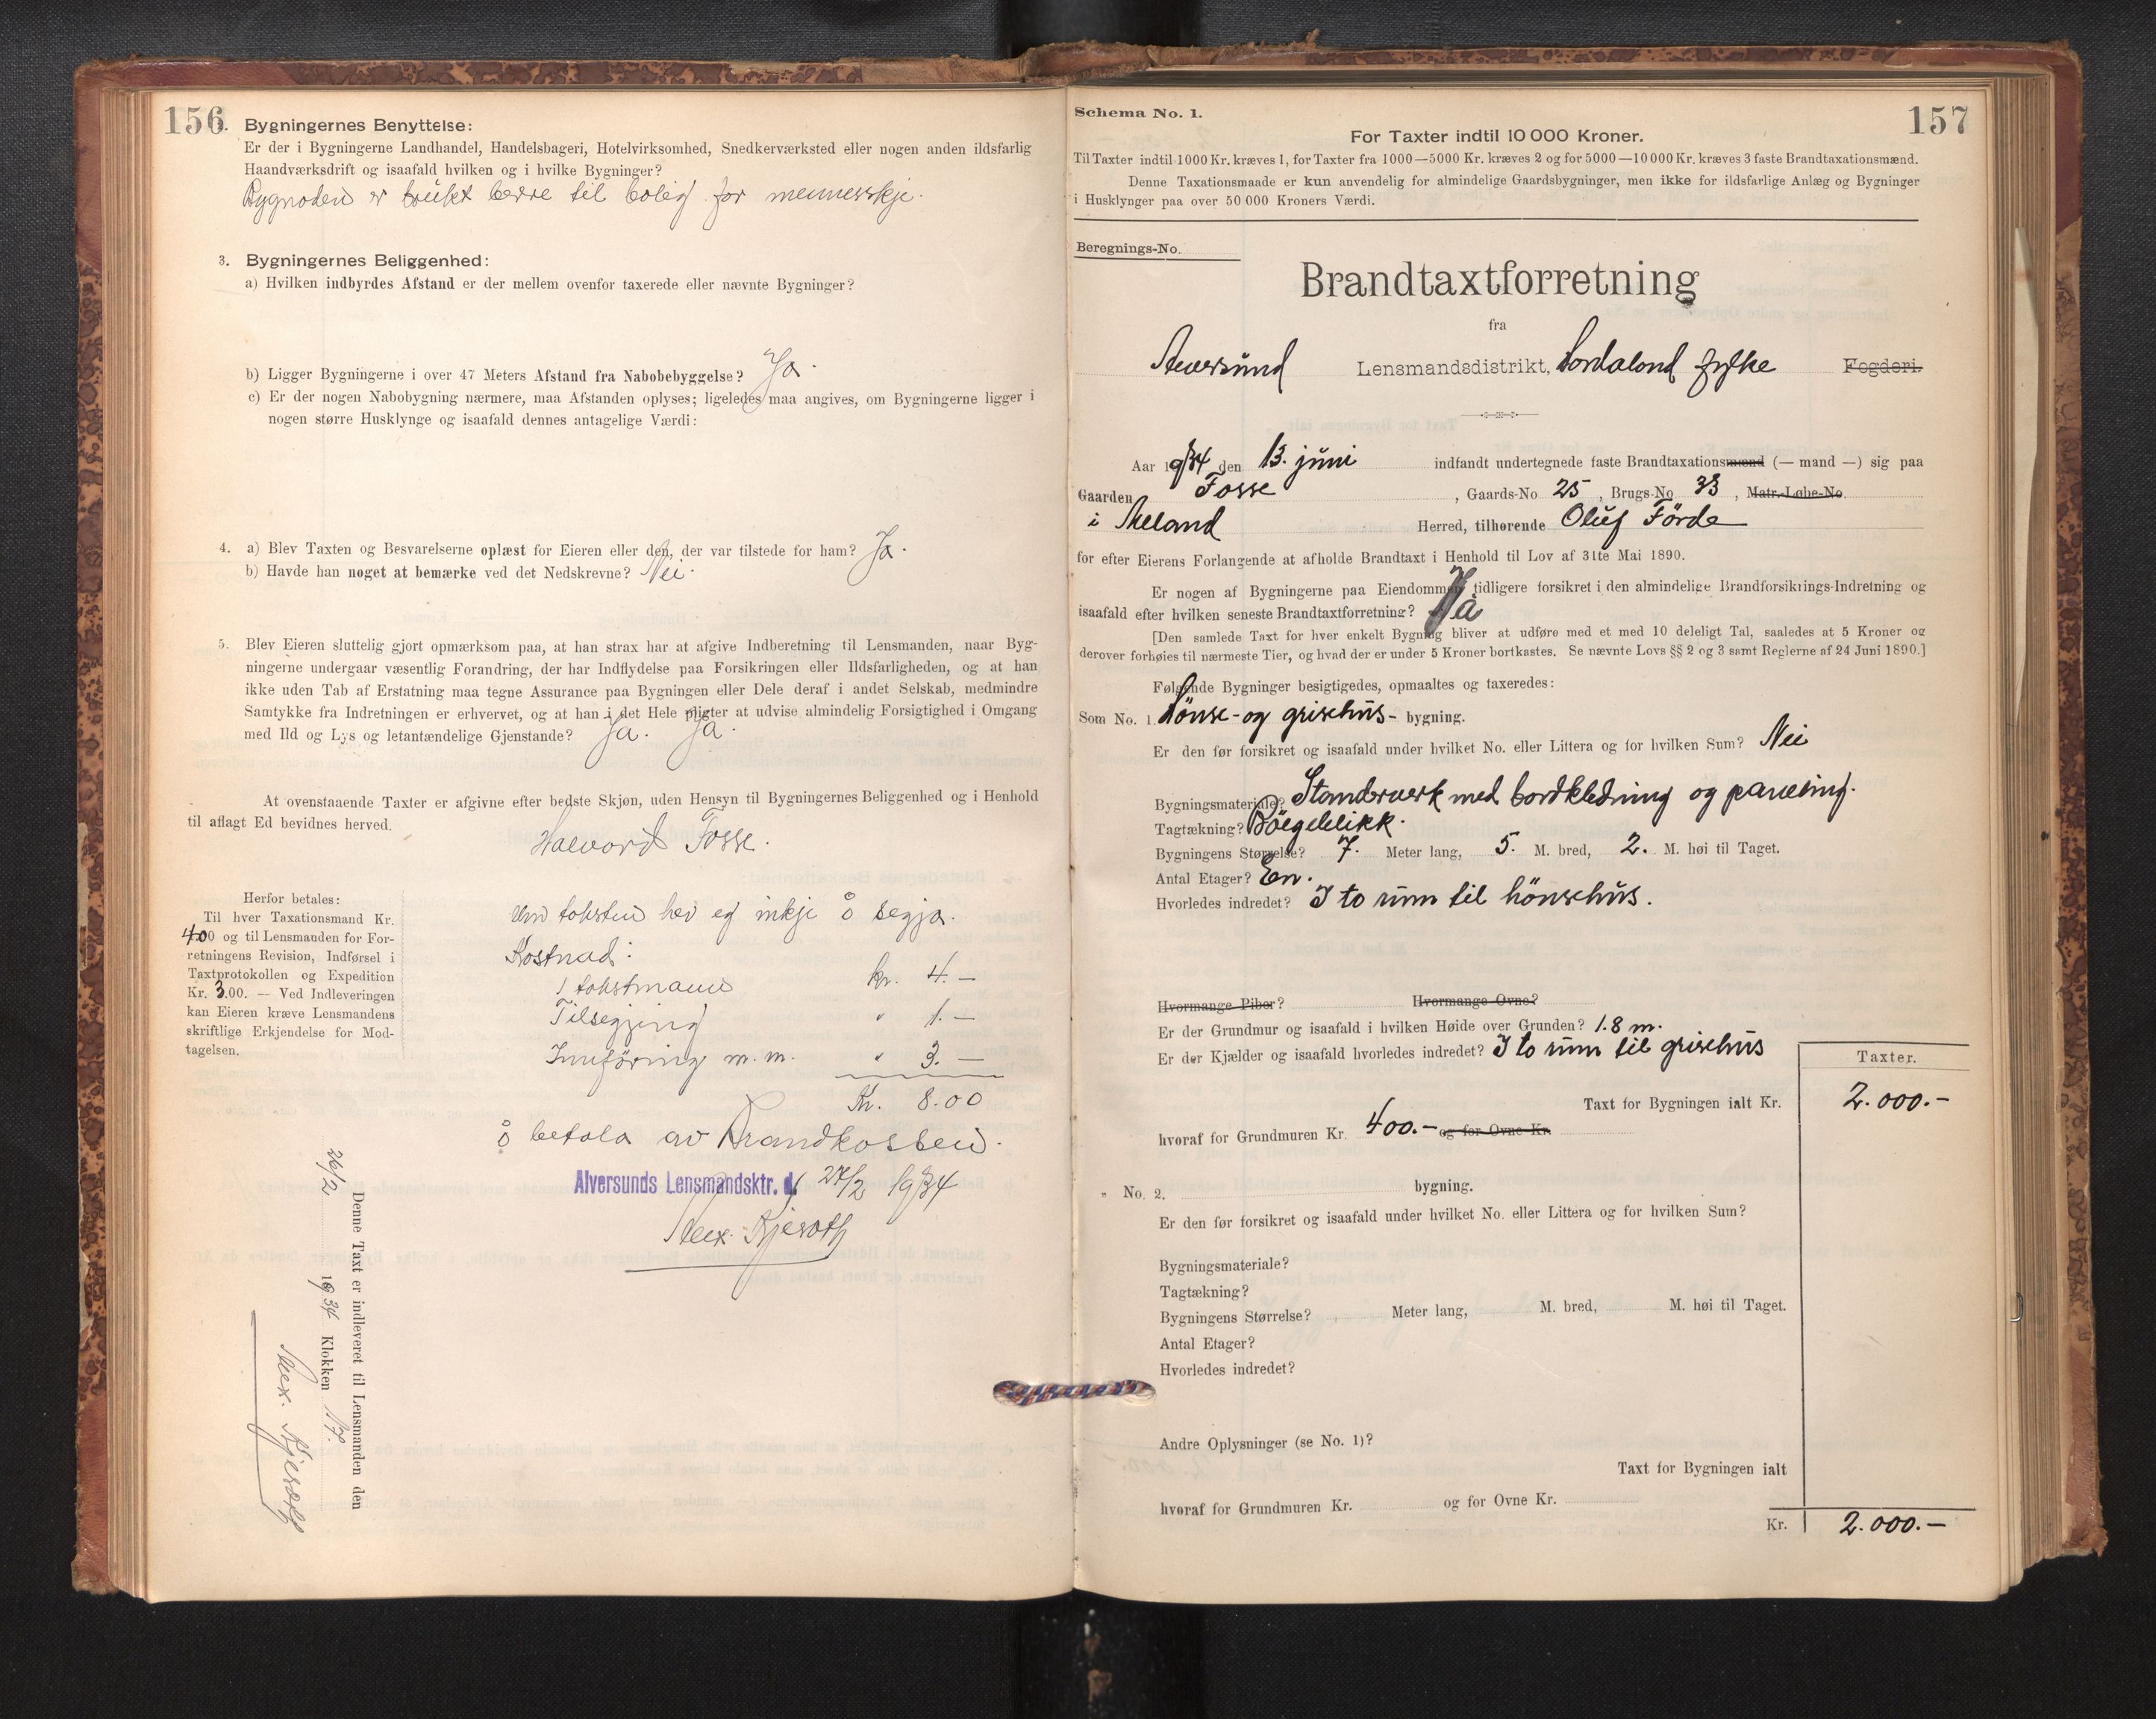 156
Bygningernes Benyttelse:
Er der i Bygningerne Landhandel, Handelsbageri, Hotelvirksomhed, Snedkerværksted eller nogen anden ildsfarlig
Haandværksdrift og isaafald hvilken og i hvilke Bygninger?
Bygnoden er brukt berre til bolig for menneskje.
3. Bygningernes Beliggenhed:
a) Hvilken indbyrdes Afstand er der mellem ovenfor taxerede eller nævnte Bygninger?
b) Ligger Bygningerne i over 47 Meters Afstand fra Nabobebyggelse? Ja.
c) Er der nogen Nabobygning nærmere, maa Afstanden oplyses; ligeledes maa angives, om Bygningerne ligger i
nogen større Husklynge og isaafald dennes antagelige Værdi:
4. a) Blev Taxten og Besvarelserne oplæst for Eieren eller den, der var tilstede for ham? Ja.
b) Havde han noget at bemærke ved det Nedskrevne? Nei.
5. Blev Eieren sluttelig gjort opmærksom paa, at han strax har at afgive Indberetning til Lensmanden, naar Byg-
ningerne undergaar væsentlig Forandring, der har Indflydelse paa Forsikringen eller Ildsfarligheden, og at han
ikke uden Tab af Erstatning maa tegne Assurance paa Bygningen eller Dele deraf i andet Selskab, medmindre
Samtykke fra Indretningen er erhvervet, og at han i det Hele pligter at udvise almindelig Forsigtighed i Omgang
med Ild og Lys og letantændelige Gjenstande? Ja. Ja.
At ovenstaaende Taxter er afgivne efter bedste Skjøn, uden Hensyn til Bygningernes Beliggenhed og i Henhold
til aflagt Ed bevidnes herved.
Halvard Fosse.
Herfor betales:
Til hver Taxationsmand Kr.
4.00 og til Lensmanden for For-
retningens Revision, Indførsel i
Taxtprotokollen og Expedition
Kr. 3.00. — Ved Indleveringen
kan Eieren kræve Lensmandens
skriftlige Erkjendelse for Mod-
tagelsen.
Um taksten hev eg inkje å segja.
Kostnad:
1 takstmann kr. 4.—
Tilsegjing " 1.—
Innföring m.m. " 3.—
Kr. 8.00
å betala av Brandkassen.
Alversunds Lensmandsktr. d. 27/2 1934
Alex. Kjeroth
Denne Taxt er indleveret til Lensmanden den
26/2 1934 Klokken 17.
Alex. Kjeroth
157
Schema No. 1.
For Taxter indtil 10 000 Kroner.
Til Taxter indtil 1000 Kr. kræves 1, for Taxter fra 1000—5000 Kr. kræves 2 og for 5000—10 000 Kr. kræves 3 faste Brandtaxationsmænd.
Denne Taxationsmaade er kun anvendelig for almindelige Gaardsbygninger, men ikke for ildsfarlige Anlæg og Bygninger
i Husklynger paa over 50 000 Kroners Værdi.
Beregnings-No.
Brandtaxtforretning
fra
Alversund Lensmandsdistrikt, Hordaland fylke Fogderi.
Aar 1934 den 13. juni indfandt undertegnede faste Brandtaxationsmænd (— mand —) sig paa
Gaarden Fosse, Gaards-No 25, Brugs-No 33, Matr.-Løbe-No.
i Meland Herred, tilhørende Oluf Förde
for efter Eierens Forlangende at afholde Brandtaxt i Henhold til Lov af 31te Mai 1890.
Er nogen af Bygningerne paa Eiendommen tidligere forsikret i den almindelige Brandforsikrings-Indretning og
isaafald efter hvilken seneste Brandtaxtforretning? Ja
[Den samlede Taxt for hver enkelt Bygning bliver at udføre med et med 10 deleligt Tal, saaledes at 5 Kroner og
derover forhøies til nærmeste Tier, og hvad der er under 5 Kroner bortkastes. Se nævnte Lovs §§ 2 og 3 samt Reglerne af 24 Juni 1890.]
Følgende Bygninger besigtigedes, opmaaltes og taxeredes:
Som No. 1. Hönse- og grisehus- bygning.
Er den før forsikret og isaafald under hvilket No. eller Littera og for hvilken Sum? Nei
Bygningsmateriale? Standerverk med bordkledning og paneling.
Tagtækning? Bölgeblikk.
Bygningens Størrelse? 7. Meter lang, 5. M. bred, 2. M. høi til Taget.
Antal Etager? En.
Hvorledes indredet? I to rum til hönsehus.
Hvormange Piber? Hvormange Ovne?
Er der Grundmur og isaafald i hvilken Høide over Grunden? 1.8 m.
Er der Kjælder og isaafald hvorledes indredet? I to rum til grisehus
Taxter.
Taxt for Bygningen ialt Kr. 2.000.-
hvoraf for Grundmuren Kr. 400.- og for Ovne Kr.
" No. 2. bygning.
Er den før forsikret og isaafald under hvilket No. eller Littera og for hvilken Sum?
Bygningsmateriale?
Tagtækning?
Bygningens Størrelse? Meter lang, M. bred, M. høi til Taget.
Antal Etager?
Hvorledes indredet?
Andre Oplysninger (se No. 1)?
Taxt for Bygningen ialt
hvoraf for Grundmuren Kr. og for Ovne Kr.
Kr. 2.000.-